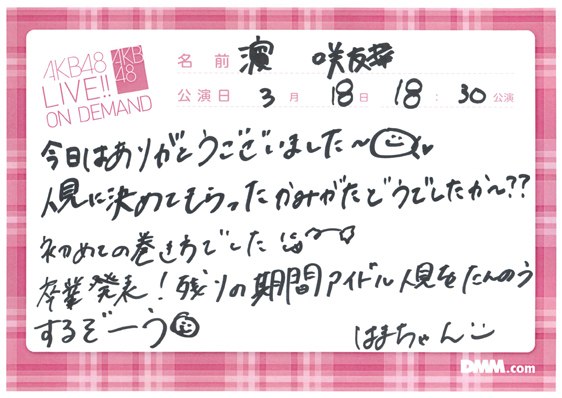 AKB48
LIVE!!
ON DEMAND
AKB
48
名前 濵 咲友菜
公演日 3月 18日 18:30 公演
今日はありがとうございました〜
人見に決めてもらったかみがたどうでしたか〜??
初めての巻き方でした
卒業発表!残りの期間アイドル人見をたんのう
するぞーう
はまちゃん
DMM.com